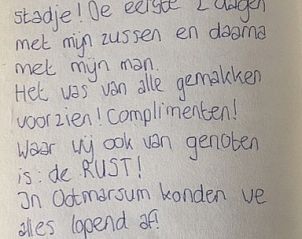 stadje! De eerste 2 dagen
met mijn zussen en daarna
met mijn man.
Het was van alle gemakken
voorzien! Complimenten!
Waar wij ook van genoten
is: de RUST!
In Ootmarsum konden we
alles lopend af!